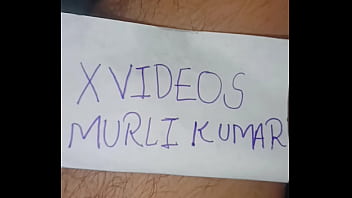 X VIDEOS
MURLI KUMAR